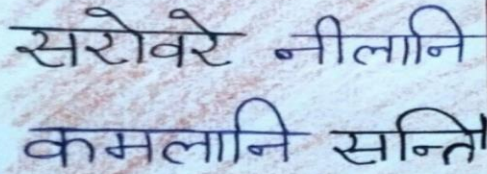 सरोवरे नीलानि
कमलानि सन्ति।